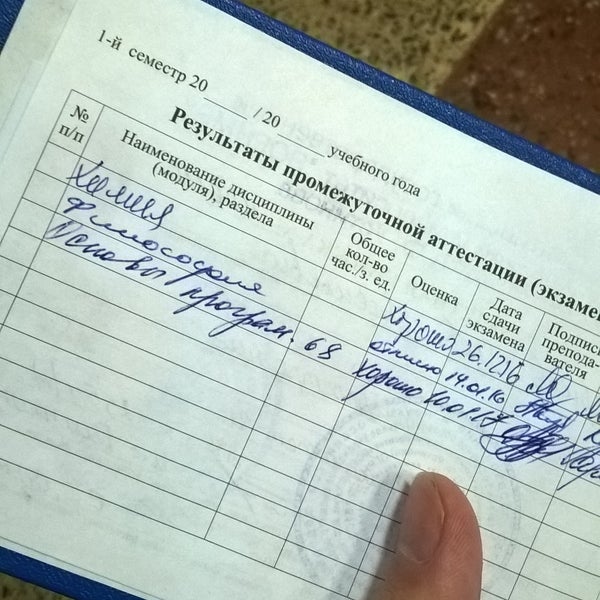 1-й семестр 20____ / 20____ учебного года
Результаты промежуточной аттестации (экзаме
№ п/п
Наименование дисциплины (модуля), раздела
Общее кол-во час./з. ед.
Оценка
Дата сдачи экзамена
Подпись препода-вателя
Химия Хорошо 26.12.16
Философия отлично 14.01.16
Основы програм. 68 хорошо 10.01.17